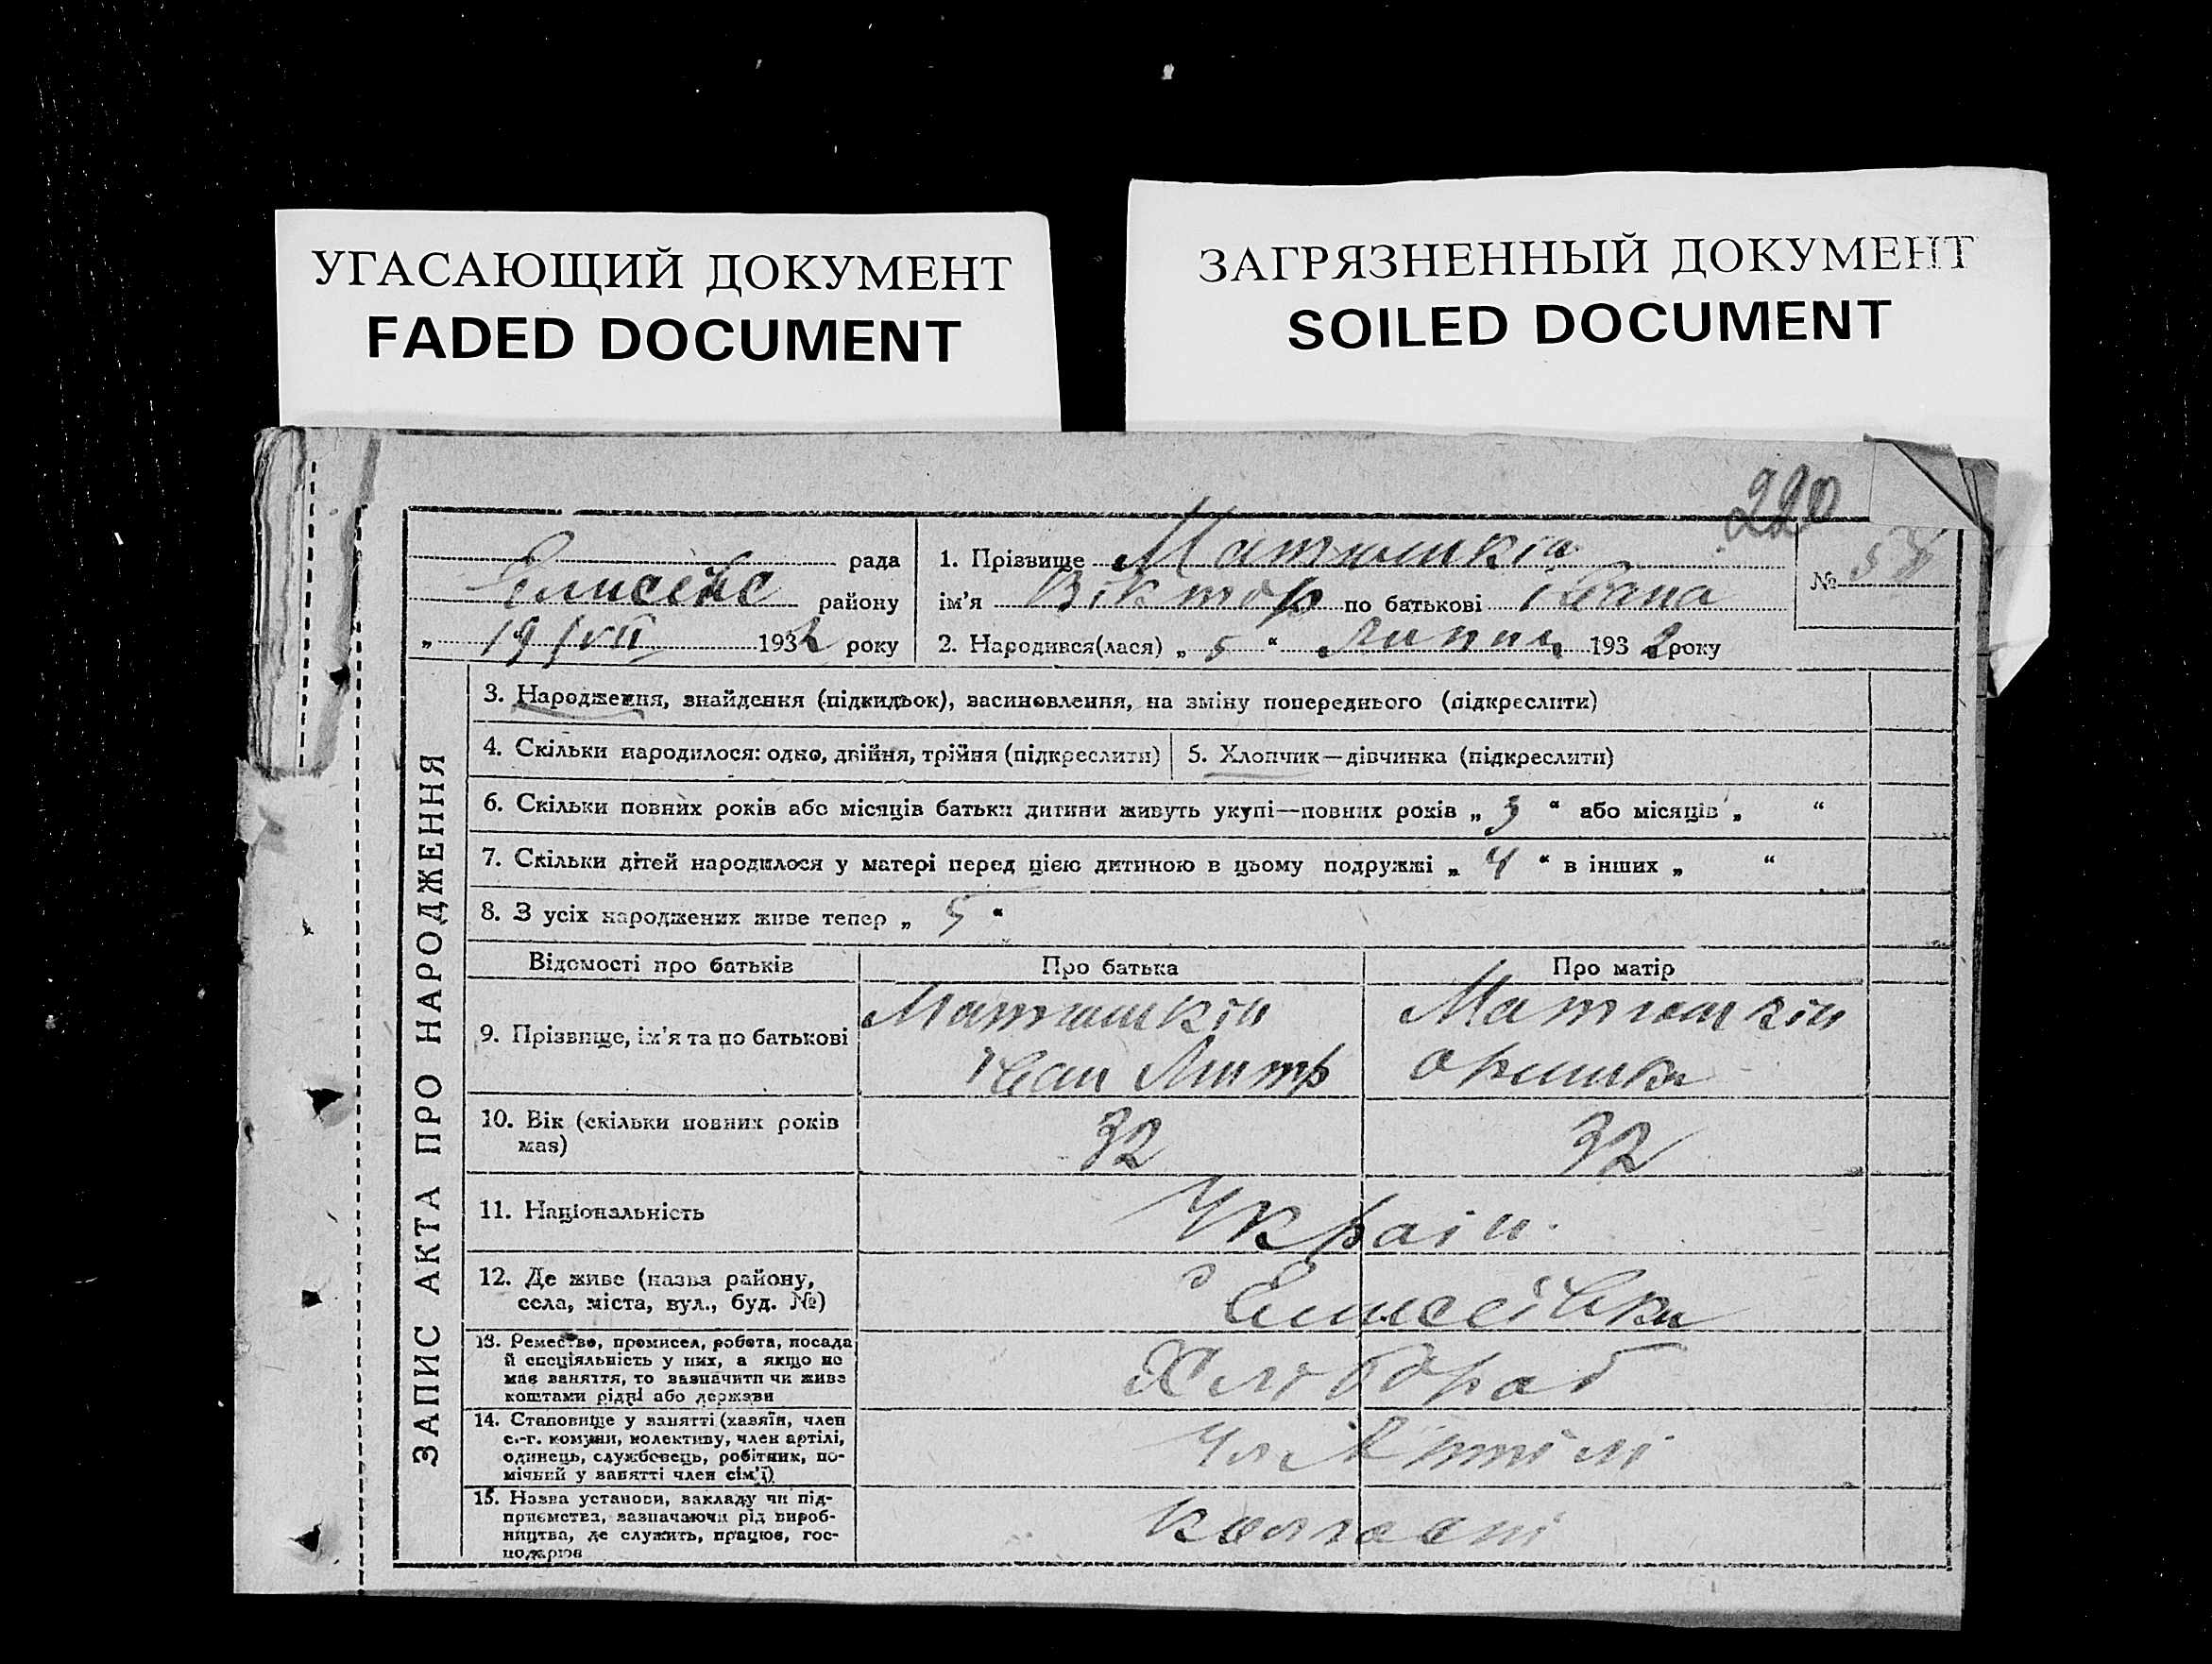 УГАСАЮЩИЙ ДОКУМЕНТ
FADED DOCUMENT
ЗАГРЯЗНЕННЫЙ ДОКУМЕНТ
SOILED DOCUMENT
220
рада
району
„ 19/VII 1932 року
1. Прізвище Матюшкін
ім'я Віктор по батькові Івана
2. Народився(лася) „ 5 “ Липня 1932 року
№ 58
ЗАПИС АКТА ПРО НАРОДЖЕННЯ
3. Народження, знайдення (підкидьок), васиновлення, на зміну попереднього (підкреслити)
4. Скільки народилося: одно, двійня, трійня (підкреслити)
5. Хлопчик—дівчинка (підкреслити)
6. Скільки повних років або місяців батьки дитини живуть укупі—повних років „ 3 “ або місяців „ “
7. Скільки дітей народилося у матері перед цією дитиною в цьому подружжі „ 4 “ в інших „ “
8. З усіх народжених живе тепер „ 5 “
Відомості про батьків
Про батька
Про матір
9. Прізвище, ім'я та по батькові
Матюшкін
Іван Дмитр
Матюшкін
Оришка
10. Вік (скільки повних років
має)
32
32
11. Національність
Україн.
12. Де живе (назва району,
села, міста, вул., буд. №)
с Єлисеївка
13. Ремество, промисел, робота, посада
й спеціяльність у них, а якщо не
має заняття, то зазначити чи живе
коштами рідні або держави
Хлібороб
14. Становище у занятті (хазяїн, член
с.-г. комуни, колективу, член артілі,
одинець, службовець, робітник, по-
мічний у занятті член сім'ї)
Чл Артілі
15. Назва установи, закладу чи під-
приємства, зазначаючи рід вироб-
ництва, де служить, працює, гос-
подарює
Колгоспі